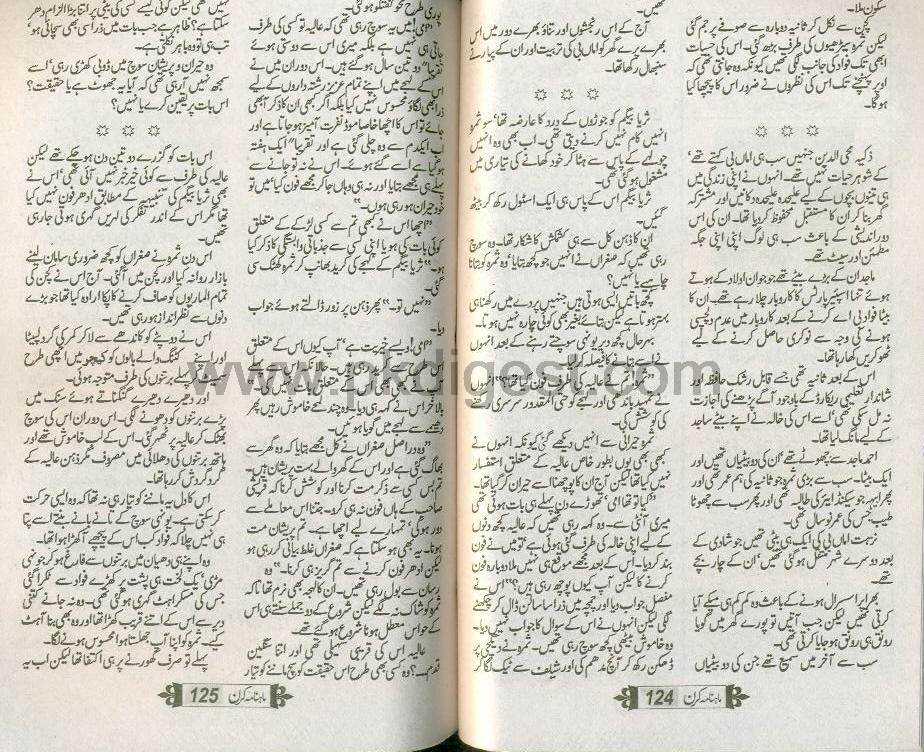 سکون ملا۔
کچن سے نکل کر ثانیہ دوبارہ سے صوفے پر جم گئی
لیکن ثمرہ سیڑھیوں کی طرف بڑھ گئی۔ اس کی حسیات
ابھی تک فواد کی جانب لگی تھیں کیونکہ وہ جانتی تھی کہ
اوپر پہنچنے تک اس کی نظروں نے ضرور اس کا پیچھا کیا
ہوگا۔
ذکیہ محی الدین جنہیں سب ہی اماں بی کہتے تھے‘
کے شوہر حیات نہیں تھے۔ انہوں نے اپنی زندگی میں
ہی تینوں بچوں کے لیے علیحدہ علیحدہ دکانیں اور مشترکہ
گھر بنا کر ان کا مستقبل محفوظ کردیا تھا۔ ان کی اس
دور اندیشی کے باعث سب ہی لوگ اپنی اپنی جگہ
مطمئن اور سیٹ تھے۔
ماجد ان کے بڑے بیٹے تھے جو جوان اولاد کے ہوتے
ہوئے تنہا اسپئیر پارٹس کا کاروبار چلا رہے تھے۔ ان کا
بیٹا فواد بی اے کرنے کے بعد کاروبار میں عدم دلچسپی
ہونے کی وجہ سے نوکری حاصل کرنے کے لیے
ٹھوکریں کھا رہا تھا۔
اس کے بعد ثانیہ تھی جسے قابل رشک حافظہ اور
شاندار تعلیمی ریکارڈ کے باوجود آگے پڑھنے کی اجازت
نہ مل سکی تھی‘ اسے اس کی خالہ نے اپنے بیٹے ساجد
کے لیے مانگ لیا تھا۔
احمد ماجد سے چھوٹے تھے‘ ان کی دو بیٹیاں تھیں اور
ایک بیٹا۔ سب سے بڑی ثمرہ جو ثانیہ کی ہم عمر تھی اور
پھر جو سیکنڈ ایئر کی طالبہ تھی اور پھر سب سے چھوٹا
طیب جس کی عمر نو سال تھی۔
نزہت اماں بی کی ایک ہی بیٹی تھیں جو شادی کے
بعد دوسرے شہر منتقل ہوگئی تھیں‘ ان کے چار بچے
تھے۔
بھرا پرا سسرال ہونے کے باعث وہ کم کم ہی میکے آیا
کرتی تھیں لیکن جب آتیں تو پورے گھر میں گویا
رونق ہی رونق ہوجایا کرتی تھی۔
سب سے آخر میں سمیع تھے جن کی دو بیٹیاں
تھیں۔
آج کے اس رنجشوں اور تناؤ بھرے دور میں اس
بھرے پرے گھر کو اماں بی کی تربیت اور ان کے پیار نے
سنبھال رکھا تھا۔
ثریا بیگم کو جوڑوں کے درد کا عارضہ تھا‘ سو ثمرہ
انہیں کام نہیں کرنے دیتی تھی۔ اب بھی وہ انہیں
چولہے کے پاس سے ہٹا کر خود کھانے کی تیاری میں
مشغول ہوگئی تھی۔
ثریا بیگم اس کے پاس ہی ایک اسٹول رکھ کر بیٹھ
گئیں۔
ان کا ذہن کل سے ہی کشمکش کا شکار تھا۔ وہ سوچ
رہی تھیں کہ صغراں نے انہیں جو کچھ بتایا‘ وہ ثمرہ کو بتانا
چاہیے یا نہیں؟
کچھ باتیں ایسی ہوتی ہیں جنہیں پردے میں رکھنا ہی
بہتر ہوتا ہے لیکن بتائے بغیر بھی کوئی چارہ نہیں ہوتا۔
بہرحال کچھ دیر یونہی سوچتے رہنے کے بعد انہوں
نے اسے بتانے کا فیصلہ کرلیا۔
”ثمرہ! تم نے عالیہ کی طرف فون کیا تھا؟“ انہوں
نے تمہید باندھی اور لہجے کو حتی المقدور سرسری رکھنے
کی کوشش کی۔
ثمرہ حیرانی سے انہیں دیکھے گئی کیونکہ انہوں نے
کبھی بھی یوں بطور خاص عالیہ کے متعلق استفسار
نہیں کیا تھا لیکن آج ان کا پوچھنا اسے حیران کر گیا تھا۔
”کیا تو تھا امی! تھوڑے دن پہلے ہی بات ہوئی تھی
میری آنٹی سے۔ وہ کہہ رہی تھیں کہ عالیہ کچھ دنوں
کے لیے اپنی خالہ کی طرف گئی ہوئی ہے‘ تو میں نے فون
بند کردیا۔ اس کے بعد مجھے موقع ہی نہیں ملا دوبارہ فون
کرنے کا لیکن آپ کیوں پوچھ رہی ہیں؟“ اس نے
مفصل جواب دیا اور پتیلی میں ذرا سا پانی ڈال کر چمچ
لگی لیکن انہوں نے اس کے سوال کا جواب نہیں دیا۔
وہ خاموش بیٹھی کچھ سوچ رہی تھیں۔ ثمرہ نے دیگچی پر
ڈھکن رکھ کر آنچ مدھم کی اور شیلف سے ٹیک لگا کر
ماہنامہ کرن 124
پوری طرح متوجہ ہوگئی۔
”امی! میں یہ سوچ رہی تھی کہ عالیہ تو کسی کی طرف
جاتی ہی نہیں ہے بلکہ میری اس سے دوستی ہوئے
تقریباً دو تین سال ہوگئے ہیں۔ اس دوران میں نے
اس کے لہجے میں اپنے تمام عزیز رشتہ داروں کے لیے
ذرا بھی لگاؤ محسوس نہیں کیا بلکہ اگر کبھی ان کا ذکر آبھی
جائے تو اس کا اچھا خاصا موڈ نفرت آمیز ہوجاتا ہے اور
اب ایکدم سے وہ چلی گئی ہے اور تقریباً ایک ہفتہ
ہوگیا ہے اسے گئے ہوئے۔ اس نے نہ تو جانے سے
پہلے ہی مجھے بتایا اور نہ ہی وہاں جا کر مجھے فون کیا‘ میں تو
خود حیران ہو رہی ہوں۔“
”اچھا اس نے کبھی تم سے کسی لڑکے کے متعلق
کوئی بات کی ہو یا اپنی کسی سے جذباتی وابستگی کا ذکر کیا
ہو۔“ ثریا بیگم کے لہجے کی کرید بھانپ کر ثمرہ ٹھٹک سی
گئی۔
”نہیں تو۔“ پھر ذہن پر زور ڈالتے ہوئے جواب
دیا۔
”امی! ویسے خیریت ہے‘ آپ کیوں اس کے متعلق
اس طرح پوچھ رہی ہیں۔ حالانکہ اس سے پہلے
بالاخر اس نے کہہ ہی دیا۔ وہ چند لمحے خاموش رہیں پھر
دھیمے سے لہجے میں گویا ہوئیں۔
”وہ دراصل صغراں نے کل مجھے بتایا کہ وہ گھر سے
بھاگ گئی ہے اور اس کے گھر والے بہت پریشان ہیں۔
تم بس کسی سے ذکر مت کرنا اور کوشش کرنا کہ قریشی
صاحب کے ہاں فون نہ ہی کرو۔ جتنا اس معاملے سے
دور ہوگی‘ تمہارے لیے اچھا ہے۔ تم پریشان مت
ہونا۔ یہ بھی ہوسکتا ہے کہ صغراں غلط بیانی کر رہی ہو
لیکن ادھر فون کرنے سے تم گریز ہی کرنا۔“ وہ
رسان سے بول رہی تھیں۔ ان کا لہجہ بھی نرم تھا کہ
ثمرہ کو شاک نہ لگے لیکن شروع کے دو جملے سنتے ہی اس
کے حواس معطل ہونا شروع ہوگئے تھے۔
عالیہ اس کی قریبی سہیلی تھی اور اتنا سنگین
قدم۔۔۔؟ وہ کسی بھی طرح اس حقیقت کو سچ ماننے کو تیار
نہیں تھی لیکن کوئی کیسے کسی کی بیٹی پر اتنا بڑا الزام دھر
سکتا ہے؟ ظاہر ہے جب بات میں ذرا سی بھی سچائی ہو
تب ہی تو وہ باہر نکلتی ہے۔
وہ حیران و پریشان سوچ میں ڈوبی کھڑی رہی‘ اسے
سمجھ نہیں آرہی تھی کہ آیا یہ جھوٹ ہے یا حقیقت؟
اس بات پر یقین کرے یا نہیں؟
اس بات کو گزرے دو تین دن ہوچکے تھے لیکن
عالیہ کی طرف سے کوئی خیر خبر نہیں آئی تھی‘ اس نے
بھی ثریا بیگم کی تنبیہہ کے مطابق ادھر فون نہیں کیا
تھا مگر اس کے اندر تفکر کی لہریں گہری ہوتی جارہی
تھیں۔
اس دن ثمرہ نے صغراں کو کچھ ضروری سامان لینے
بازار روانہ کیا اور کچن میں آگئی۔ آج اس نے کچن کی
تمام الماریوں کو صاف کرنے کا پکا ارادہ کیا تھا جو بڑے
دنوں سے نظر انداز ہو رہی تھیں۔
اس نے دوپٹے کو کاندھے سے لا کر کمر کے گرد لپیٹا
اور اپنے کٹنگ والے بالوں کو کیچر میں اچھی طرح
سمیٹ کر پہلے برتنوں کی طرف متوجہ ہوئی۔
اور دھیرے دھیرے گنگناتے ہوئے سنک میں
پڑے برتنوں کو دھونے لگی۔ اس دوران اس کی سوچ
بھٹک کر عالیہ پر ٹھہر گئی۔ اس کے لب خاموش تھے اور
ہاتھ برتنوں کی دھلائی میں مصروف مگر ذہن عالیہ کے
گرد گردش کر رہا تھا۔
اس کا دل یہ ماننے کو تیار ہی نہ تھا کہ وہ ایسی حرکت
کرسکتی ہے۔ یونہی سوچ کے تانے بانے بنتے اسے پتا
ہی نہیں چلا کہ فواد کب اس کے پیچھے آکھڑا ہوا تھا۔
وہ اپنے ہی دھیان میں برتنوں سے فارغ ہو کر جونہی
مڑی‘ یک لخت ہی پشت پر کھڑے فواد سے ٹکرا گئی
جس کی مسکراہٹ گہری ہوگئی تھی۔ وہ نہ جانے کتنی
دیر سے اس کے اتنے قریب کھڑا تھا اور وہ بھی بنا آہٹ
کیے۔ ثمرہ کو اپنا آپ جھلستا ہوا محسوس ہونے لگا۔
پہلے تو صرف گھورنے پر ہی اکتفا تھا لیکن اب یہ
ماہنامہ کرن 125
www.pkdigest.com